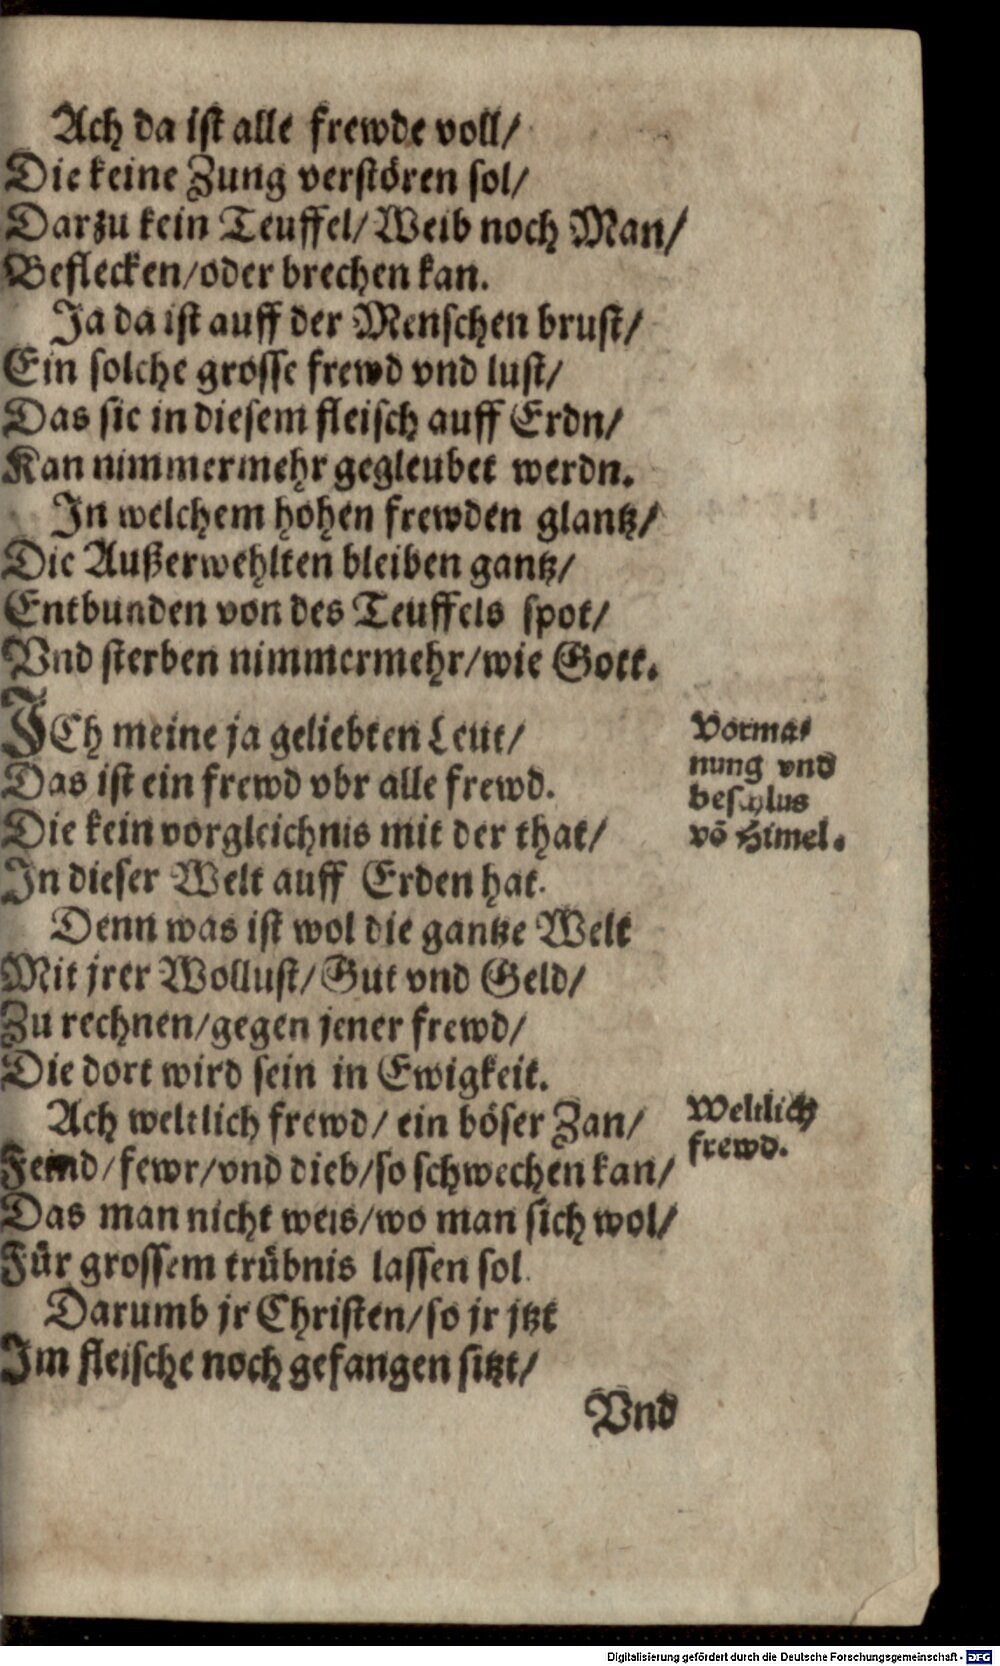 Ach da ist alle frewde voll/
Die keine Zung verstören sol/
Darzu kein Teuffel/ Weib noch Man/
Beflecken/oder brechen kan.
Ja da ist auff der Menschen brust/
Ein solche grosse frewd vnd lust/
Das sie in diesem fleisch auff Erdn/
Kan nimmermehr gegleubet werdn.
In welchem hohen frewden glantz/
Die Außerwehlten bleiben gantz/
Entbunden von des Teuffels spot/
Vnd sterben nimmermehr/wie Gott.
ICh meine ja geliebten Leut/
Das ist ein frewd vbr alle frewd.
Die kein vorgleichnis mit der that/
In dieser Welt auff Erden hat.
Denn was ist wol die gantze Welt
Mit jrer Wollust/Gut vnd Geld/
Zu rechnen/gegen jener frewd/
Die dort wird sein in Ewigkeit.
Ach weltlich frewd/ ein böser Zan/
Feind/fewr/vnd dieb/so schwechen kan/
Das man nicht weis/wo man sich wol/
Für grossem trübnis lassen sol.
Darumb jr Christen/so jr jtzt
Im fleische noch gefangen sitzt/
Vnd
Vorma/
nung vnd
beschlus
võ Himel.
Weltlich
frewd.
Digitalisierung gefördert durch die Deutsche Forschungsgemeinschaft - DFG